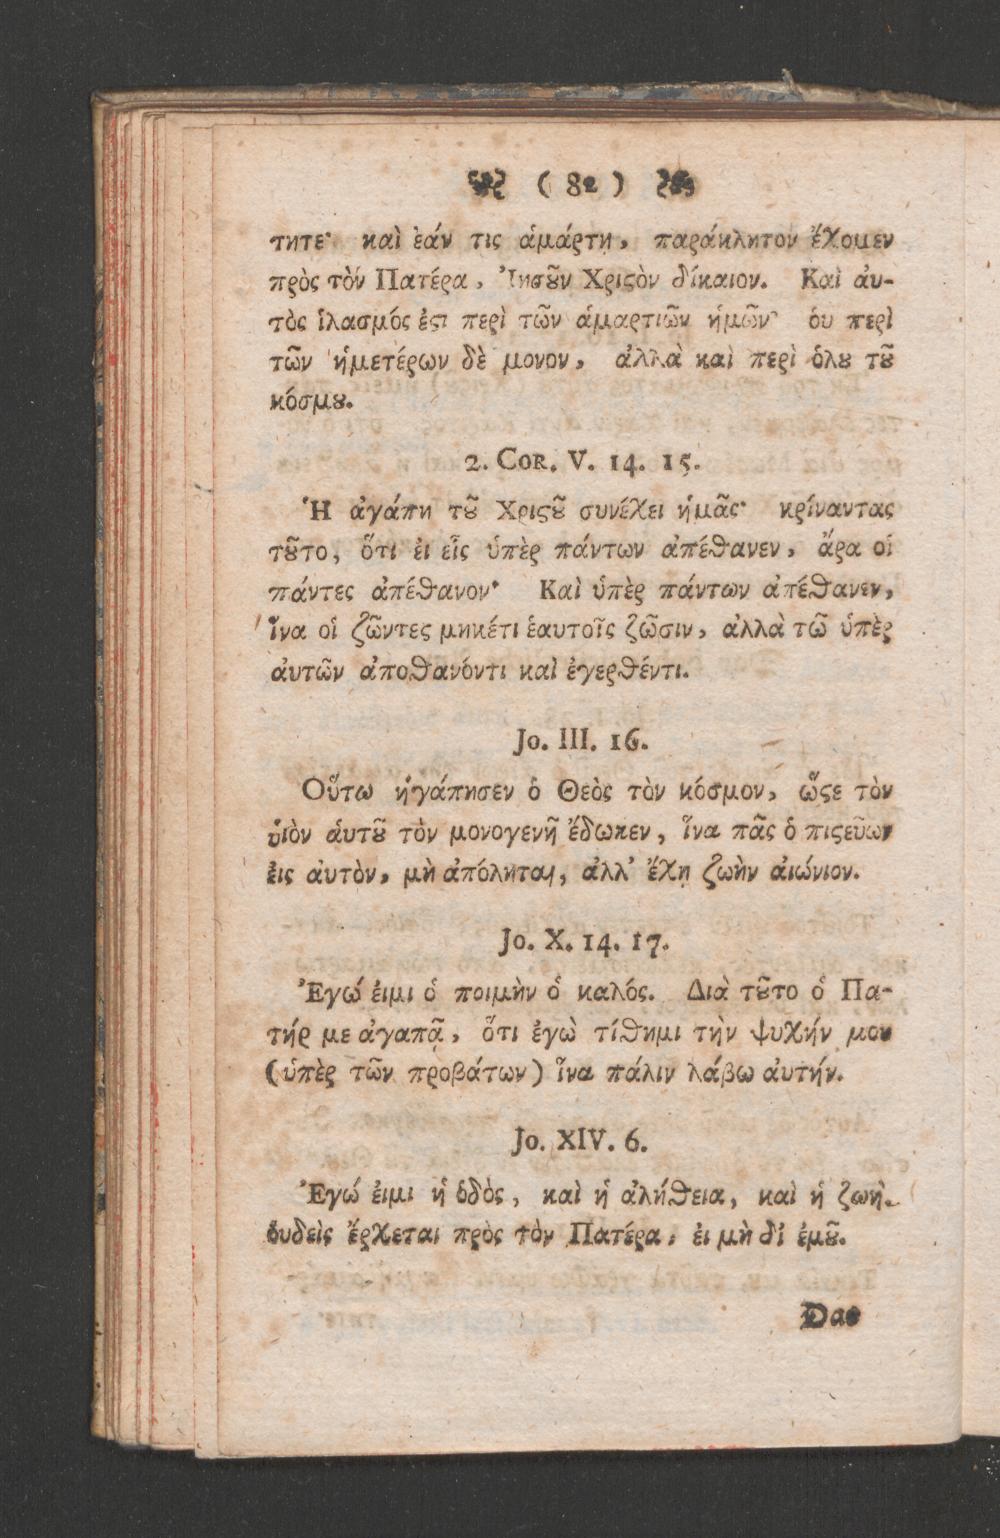 ( 82 )
τητε· καὶ ἐάν τις ἁμάρτη, παράκλητον ἔχομεν
πρὸς τὸν Πατέρα, Ἰησȣ͂ν Χριϛὸν δίκαιον. Καὶ ἀυ-
τὸς ἱλασμός ἐϛι περὶ τῶν ἁμαρτιῶν ἡμῶν· ὀυ περὶ
τῶν ἡμετέρων δὲ μονον, ἀλλὰ καὶ περὶ ὁλȣ τȣ͂
κόσμȣ.
2. COR. V. 14. 15.
Ἡ ἀγάπη τȣ͂ Χριϛȣ͂ συνέχει ἡμᾶς· κρίναντας
τȣ͂το, ὅτι ἐι εἷς ὑπὲρ πάντων ἀπέθανεν, ἄρα οἱ
πάντες ἀπέθανον· Καὶ ὑπὲρ πάντων ἀπέθανεν,
ἵνα οἱ ζῶντες μηκέτι ἑαυτοῖς ζῶσιν, ἀλλὰ τῶ ὑπὲρ
ἀυτῶν ἀποθανόντι καὶ ἐγερθέντι.
Jo. III. 16.
Οὕτω ἠγάπησεν ὁ Θεὸς τὸν κόσμον, ὥϛε τὸν
ὑιὸν ἁυτȣ͂ τὸν μονογενῆ ἔδωκεν, ἵνα πᾶς ὁ πιϛεῦων
ἐις ἀυτὸν, μὴ ἀπόληται, ἀλλ' ἔχῃ ζωὴν ἀιώνιον.
Jo. X. 14. 17.
Ἐγώ ἐιμι ὁ ποιμὴν ὁ καλός. Διὰ τȣ͂το ὁ Πα-
τήρ με ἀγαπᾷ, ὅτι ἐγὼ τίθημι τὴν ψυχήν μου
(ὑπὲρ τῶν προβάτων) ἵνα πάλιν λάβω ἀυτήν.
Jo. XIV. 6.
Ἐγώ ἐιμι ἡ ὁδὸς, καὶ ἡ ἀλήθεια, καὶ ἡ ζωὴ.
ὀυδεὶς ἔρχεται πρὸς τὸν Πατέρα, ἐι μὴ δἰ ἐμȣ͂.
Das